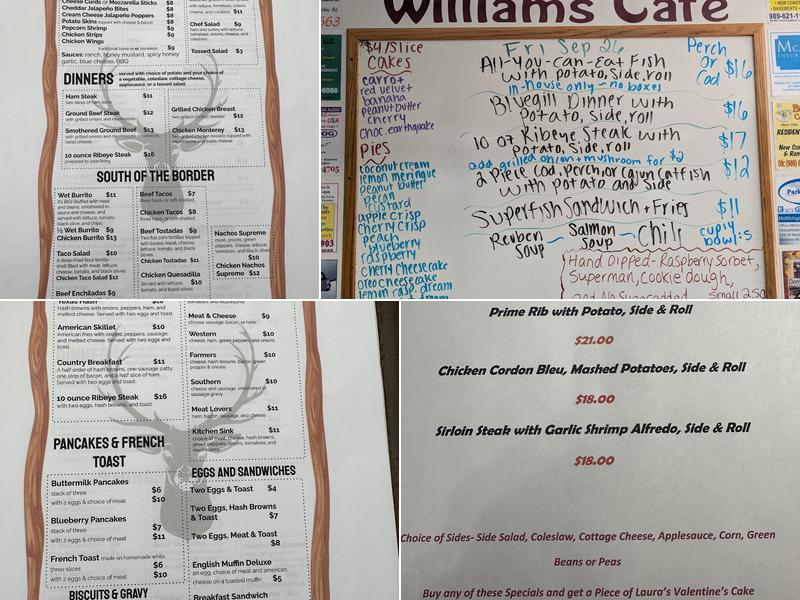 Cheese Curds or Mozzarella Sticks $8
Cheddar Jalapeño Bites $8
Cream Cheese Jalapeño Peppers $8
Potato Skins topped with cheese & bacon $8
Popcorn Shrimp $9
Chicken Strips $9
Chicken Wings
traditional bone-in or boneless $9
Sauces: ranch, honey mustard, spicy honey
garlic, blue cheese, BBQ
with lettuce, tomatoes, onions,
cheese, and croutons $11
Chef Salad $9
ham and turkey with lettuce,
tomatoes, onions, cheese,
and croutons
Tossed Salad $3
DINNERS
served with choice of potato and your choice of
a vegetable, coleslaw, cottage cheese,
applesauce, or a tossed salad.
Ham Steak $11
two slices of ham steak
Ground Beef Steak $12
with grilled onions and mushrooms
Smothered Ground Beef $13
with grilled onions and mushrooms
10 ounce Ribeye Steak $16
prepared to your liking
Grilled Chicken Breast
two grilled chicken breasts $12
Chicken Monterey $13
two grilled chicken breasts topped with
mushrooms and swiss cheese
SOUTH OF THE BORDER
Wet Burrito $11
It's BIG! Stuffed with meat
and beans, smothered in
sauce and cheese, and
served with lettuce, tomato,
black olives, and chips.
½ Wet Burrito $9
Chicken Burrito $13
Taco Salad $10
A deep-fried flour tortilla
shell filled with meat, lettuce,
cheese, tomato, and black olives
Chicken Taco Salad $12
Beef Enchiladas $9
Beef Tacos $7
three hard- or soft-shelled
Chicken Tacos $8
three hard- or soft-shelled
Beef Tostadas $9
Two flat corn tortillas topped
with beans, meat, cheese,
lettuce, tomato, and black
olives
Chicken Tostadas $11
Chicken Quesadilla
Served with lettuce, $10
tomato, and black olives
Nachos Supreme
meat, onions, green
peppers, cheese, lettuce,
tomatoes, and black olives
$10
Chicken Nachos
Supreme $12
Williams Cafe
$4/Slice
Cakes
carrot
red velvet
banana
peanut butter
cherry
choc. earthquake
Pies
coconut cream
lemon meringue
peanut butter
pecan
custard
apple crisp
cherry crisp
peach
blueberry
raspberry
cherry cheesecake
oreo cheesecake
lemon rasp. dream
Fri Sep 26
All-you-can-Eat Fish
with potato, side, roll
in-house only - no boxes
Perch
or
Cod $16
Bluegill Dinner with
Potato, side, roll $16
10 oz Ribeye Steak with
Potato, side, roll $17
add grilled onion + mushroom for $2
2 Piece Cod, Perch, or Cajun Catfish
with Potato and Side $12
Superfish Sandwich + Fries $11
Reuben Soup ~ Salmon Soup ~ Chili
Hand Dipped - Raspberry Sorbet,
Superman, Cookie dough,
Small 2.50
Texas Hash $10
Hash browns with onions, peppers, ham, and
melted cheese. Served with two eggs and toast.
American Skillet $10
American fries with onions, peppers, sausage,
and melted cheese. Served with two eggs and
toast.
Country Breakfast $11
A half order of hash browns, one sausage patty,
one strip of bacon, and a half slice of ham.
Served with two eggs and toast.
10 ounce Ribeye Steak $16
with two eggs, hash browns, and toast
PANCAKES & FRENCH
TOAST
Buttermilk Pancakes
stack of three $6
with 2 eggs & choice of meat $10
Blueberry Pancakes
stack of three $7
with 2 eggs & choice of meat $11
French Toast made on homemade white
three slices $6
with 2 eggs & choice of meat $10
BISCUITS & GRAVY
Meat & Cheese $9
choose sausage, bacon, or ham
Western $10
cheese, ham, green peppers and onions
Farmers $10
cheese, hash browns, bacon, green
pepper & onions
Southern $10
cheese and sausage, smothered in
sausage gravy
Meat Lovers $11
ham, bacon, sausage, and cheese
Kitchen Sink $11
choice of meat, cheese, hash browns,
green peppers, onions, tomatoes, and
mushrooms
EGGS AND SANDWICHES
Two Eggs & Toast $4
Two Eggs, Hash Browns
& Toast $7
Two Eggs, Meat & Toast
$8
English Muffin Deluxe
an egg, choice of meat and american
cheese on a toasted muffin $5
Breakfast Sandwich
Prime Rib with Potato, Side & Roll
$21.00
Chicken Cordon Bleu, Mashed Potatoes, Side & Roll
$18.00
Sirloin Steak with Garlic Shrimp Alfredo, Side & Roll
$18.00
Choice of Sides- Side Salad, Coleslaw, Cottage Cheese, Applesauce, Corn, Green
Beans or Peas
Buy any of these Specials and get a Piece of Laura's Valentine's Cake